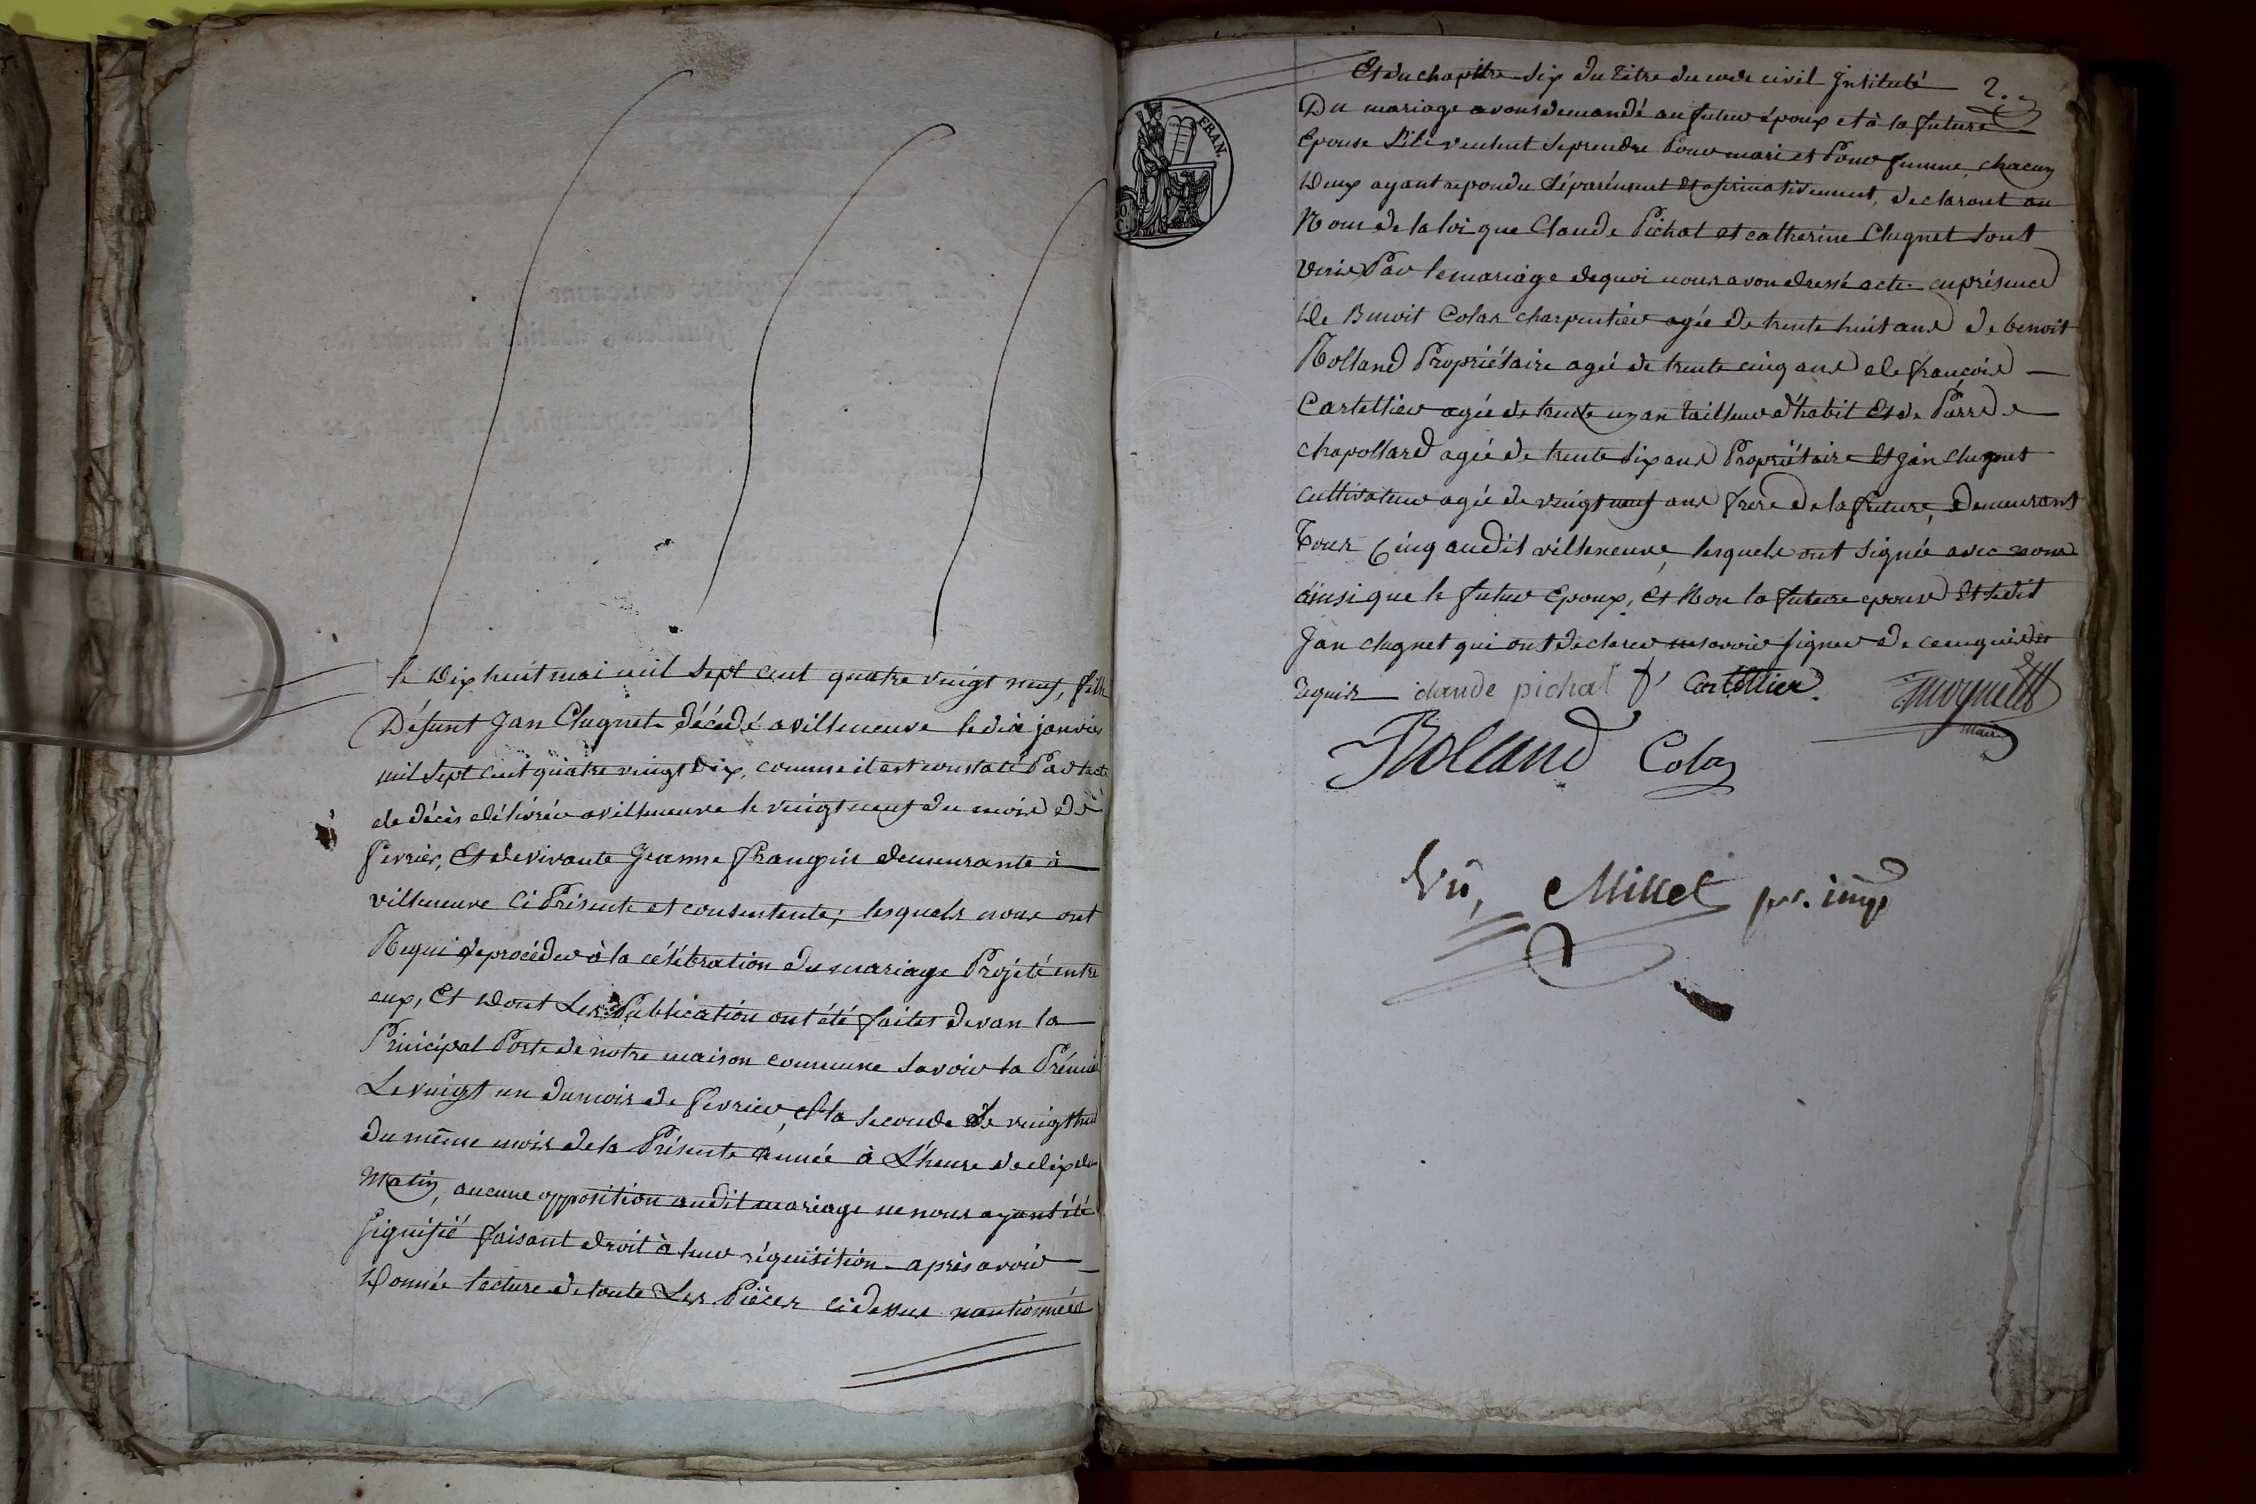 le Dix huit mai mil sept cent quatre vingt neuf, fille
Défunt Jan Clugnet décédé a villeneuve le dix janvier
mil sept cent quatre vingt Dix, comme il est constaté Par lacte
de décès délivrée a villeneuve le vingt neuf du mois de
fevrier, Et de vivante Jeanne frangin demeurante à
villeneuve Ci Présente et consentente; lesquels nous ont
Requi de procéder à la célébration du mariage Projeté entre
eux, Et Dont Les Publication ont été faites devan la
Principal Porte de notre maison commune Savoir la Prémier
Le vingt un du mois de fevrier, Et la seconde Le vingt huit
du même mois de la Présente Année à L'heure de dix du
Matin, aucune opposition audit mariage ne nous ayant été
Signifié faisant droit à leur réquisition après avoir
Donnée lecture de toute Les Piéces ci dessus mantionnées
Et du chapitre Six du titre du code civil Intitulé 2.
Du mariage avons demandé au futur époux et à la future
Epouse S'ils veulent se prendre Pour mari et Pour femme, chacun
Deux ayant repondu Séparément et afirmativement, declaront au
Nom de la loi que Claude Pichat et catherine Clugnet Sont
Unis Par le mariage de quoi nous avon dressé acte en présence
De Bnoit Colas charpentier agée de trente huit ans de benoit
Rolland Propriétaire agé de trente cinq ans de françois
Cartellier agée de trente un an tailleur d'habit Et de Pierre
chapollard agée de trente Six ans Propriétaire Et Jan Clugnet
cultivateur agée de vingt neuf ans frere de la future, Demeurant
Tous Cinq audit villeneuve, lesquels ont Signée avec nous
ainsi que le futur Epoux, Et Non la future epouse Et ledit
Jan clugnet qui ont declarer ne savoir signer de ce enquis et
requis claude pichat f' Cartellier
maire
Rolland Colas
Vu, Millet